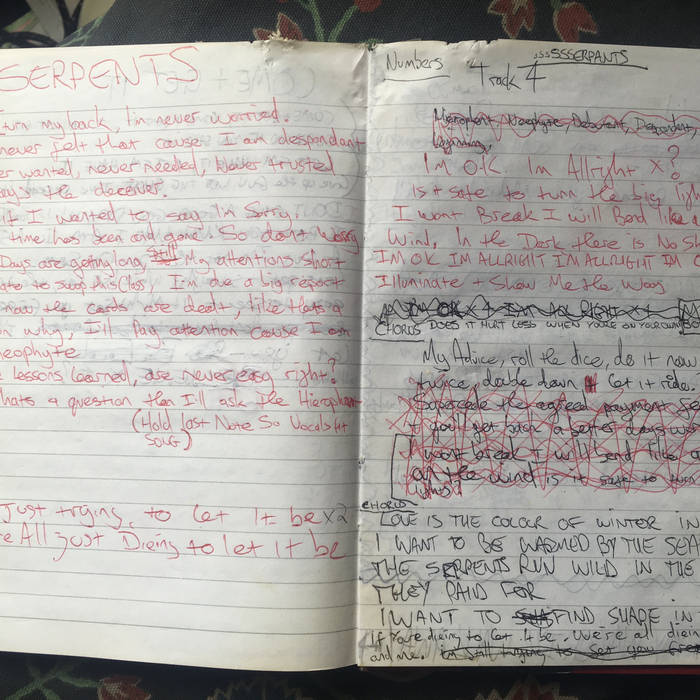 SERPENTS
turn my back, I'm never worried.
never felt that cause I am despondant
er wanted, never needed, Never trusted
ays the deceiver.
if I wanted to say I'm Sorry,
time has been and gone. So don't worry
Days are getting long, My attentions short
ate to swap this Class, I'm due a big report
now the cards are dealt, like thats a
on why, I'll Pay attention Cause I am
neophyte
Lessons learned, are never easy right?
hats a question then I'll ask the Hierophant
(Hold last Note So Vocals hit
SONG)
Just trying to let It be x2
re All just Dieing to let it be
Numbers
....SSSERPANTS
Track 4
Hierophant Neophyte, Debutant, Degradant,
beginning,
I'm O.K. I'm Allright X?
Is it safe to turn the big ligh
I wont Break I will Bend like
Wind, In the Dark there is No S
I'M OK I'M ALLRIGHT I'M ALLRIGHT I'M O
Illuminate + Show Me the Way
I'M OK + I AM ALL RIGHT X4
CHORUS DOES IT HURT LESS WHEN YOU'RE ON YOUR OWN
My Advice, roll the dice, do it now
twice, double down let it ride.
Supercede the agreed payment
If you get back a better days
I wont break I will send
the wind is it safe to turn
CHORUS
LOVE IS THE COLOUR OF WINTER IN
I WANT TO BE WARMED BY THE SEA
THE SERPENTS RUN WILD IN THE
THEY PAID FOR
I WANT TO FIND SHAPE IN
If You're dieing to let it be. We're all diein
and me. I'm still trying to set you free